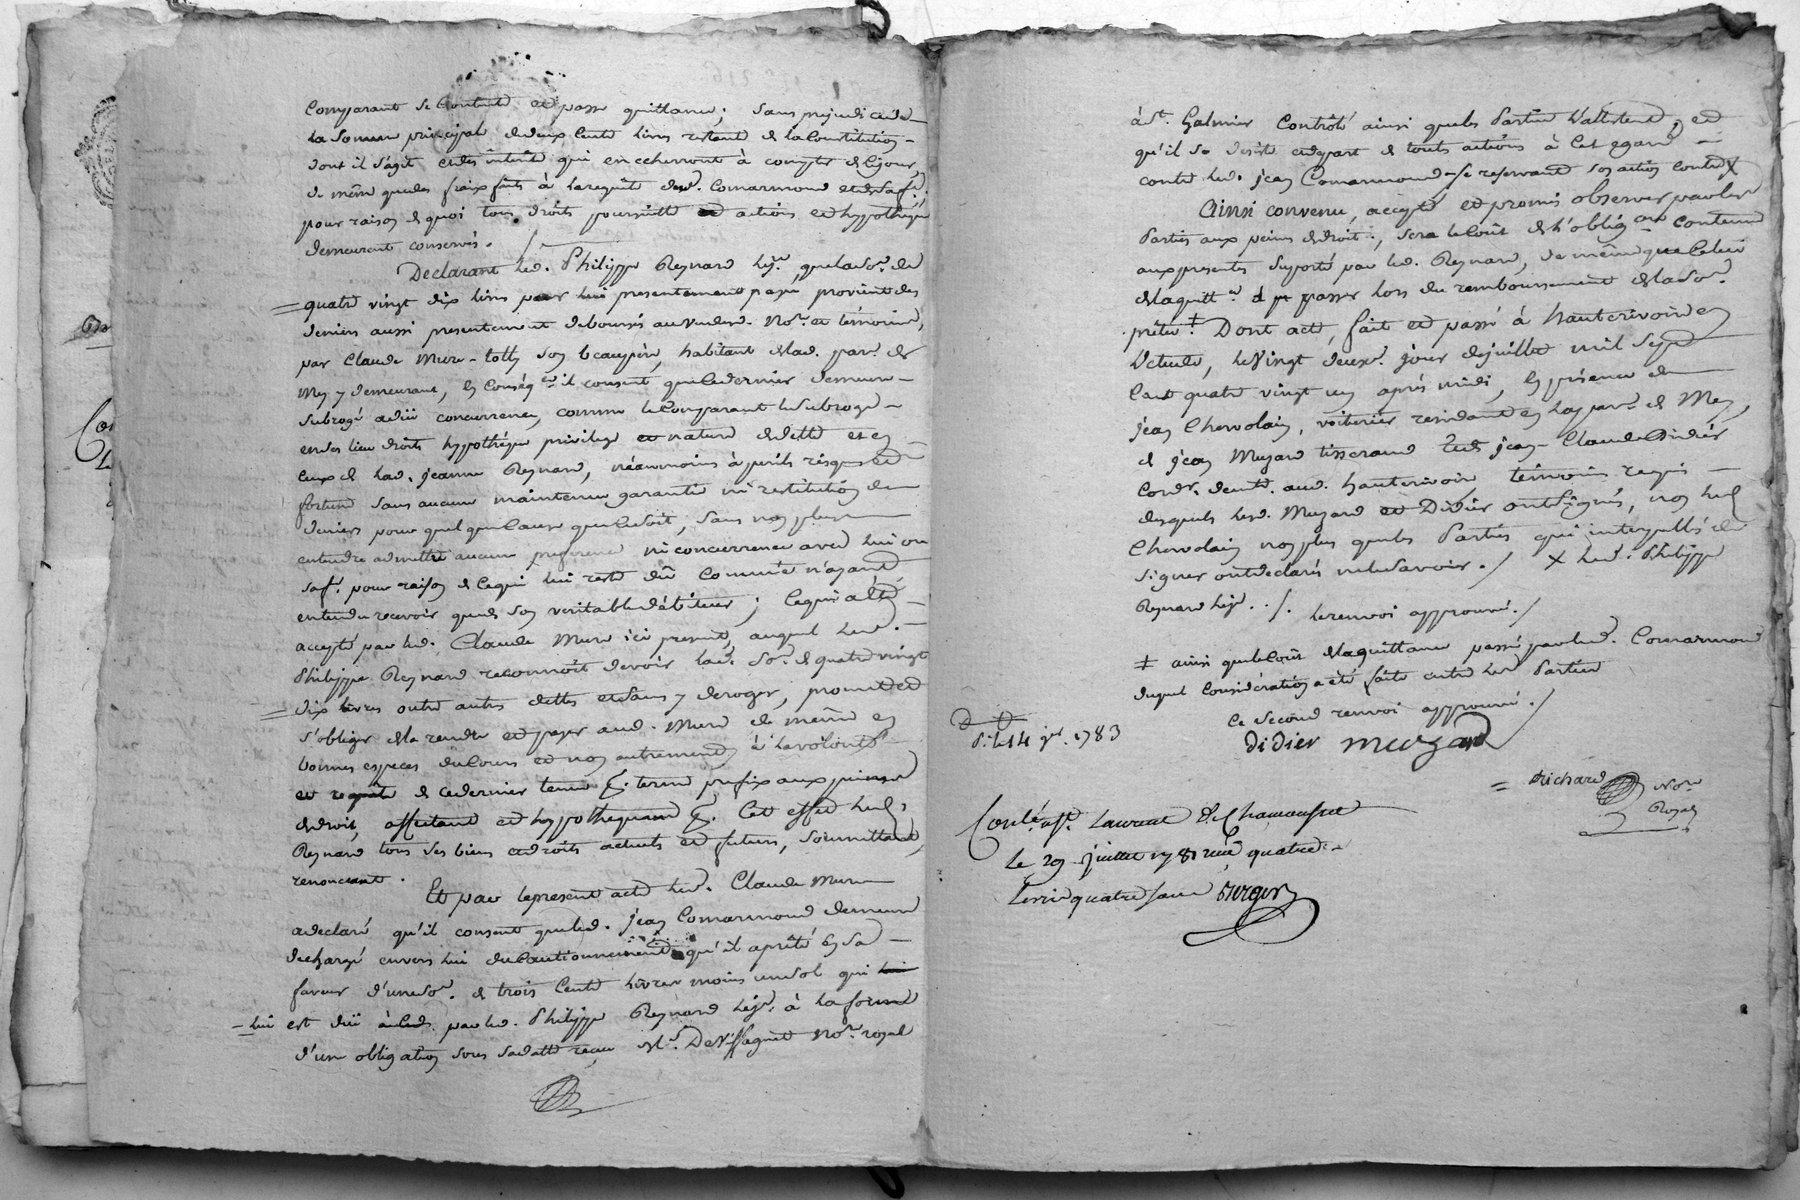 Comparant se contente et passe quittance; sans prejudice de
la somme principale de deux cents livres restante de la Constitution
dont il s'agit et des interets qui en echerront à compter de ce jour,
de même que des fraix faits à la requête dud. Comarmond et de sa fe.
pour raison de quoi tous droits poursuitte et actions et hypothèque
demeurent conservés.
Declarant led. Philippe Reynard lejne., que la so. de
quatre vingt dix livres presentement payée provient des
deniers aussi presentement deboursés au vu desd. No.re et témoins,
par Claude Mure-tolly son beaupère, habitant de lad. parr. de
Mey y demeurant, en conséqce. il consent que ce dernier demeure
subrogé à dû concurrence, comme le Comparant le subroge
en ses lieu droits hypothèque privilege et nature de dette et en
ceux de lad. jeanne Reynard, néanmoins à perils risques et
fortune sans aucune maintenue garantie ni restitution de
deniers pour quelque cause que ce soit, sans non plus
entendre admettre aucune preference ni concurrence avec lui ou
sa fe. pour raison de ce qui lui reste dû comme n'ayant
entendu recevoir que de son veritable débiteur; ce qui a été
accepté par led. Claude Mure ici present, auquel led.
Philippe Reynard reconnoît devoir lad. so. de quatre vingt
dix livres outre autres dettes et sans y deroger, promet et
s'oblige de la rendre et payer aud. Mure de même en
bonnes especes du cours et non autrement à la volonté
et requête de ce dernier tenue pr. terme prefix aux peines
de droit, affectant et hyppothequant pr. cet effet led.
Reynard tous ses biens et droits actuels et futurs, soumettant,
renonceant.
Et par le present acte led. Claude Mure
a declaré qu'il consent que led. jean Comarmond demeure
dechargé envers lui du cautionnement qu'il a prêté en sa
faveur d'une so. de trois cents livres moins un sol qui
lui est dûe aud. par led. Philippe Reynard lejne. à la forme
d'une obligation sous sa datte reçue Me. DeVissaguet No.re royal
à St. Galmier Controlé ainsi que les Parties l'attestent, et
qu'il se desiste et depart de touts actions à cet egard
contre led. jean Comarmond se reservant son action contre X
Ainsi convenu, accepté et promis observer par les
Parties aux peines de droit, sera le coût de l'obligon. contenue
aux presentes suporté par led. Reynard, de même que celui
de la quittce. à passer lors du remboursement de la so.
prêtée ‡ Dont acte, fait et passé à hauterivoire en
l'etude, le vingt deuxe. jour de juillet mil sept
cent quatre vingt un après midi, en présence de
jean Chevolain, voiturier residant en lad. parr. de Mey,
et jean Muzard tisserand et de jean-Claude Didier
cordr. demt. aud. hauterivoire temoins requis
desquels lesd. Muzard et Didier ont signés, non led.
Chevolain non plus que les Parties qui interpellés de
signer ont declarés ne le savoir. / X led. Philippe
Reynard lejne. ./. le renvoi approuvé. /
‡ ainsi que le coût de la quittance passé par led. Comarmond
duquel consideration a été faite entre les Parties
ce second renvoi approuvé. /
didier muzard
= Richard No.re
Royal
D D
P. le 14 1783
Conlé. à St. Laurent De Chamousset
le 29 juillet 1781 reçu quatre
Lerne quatre sous Burger